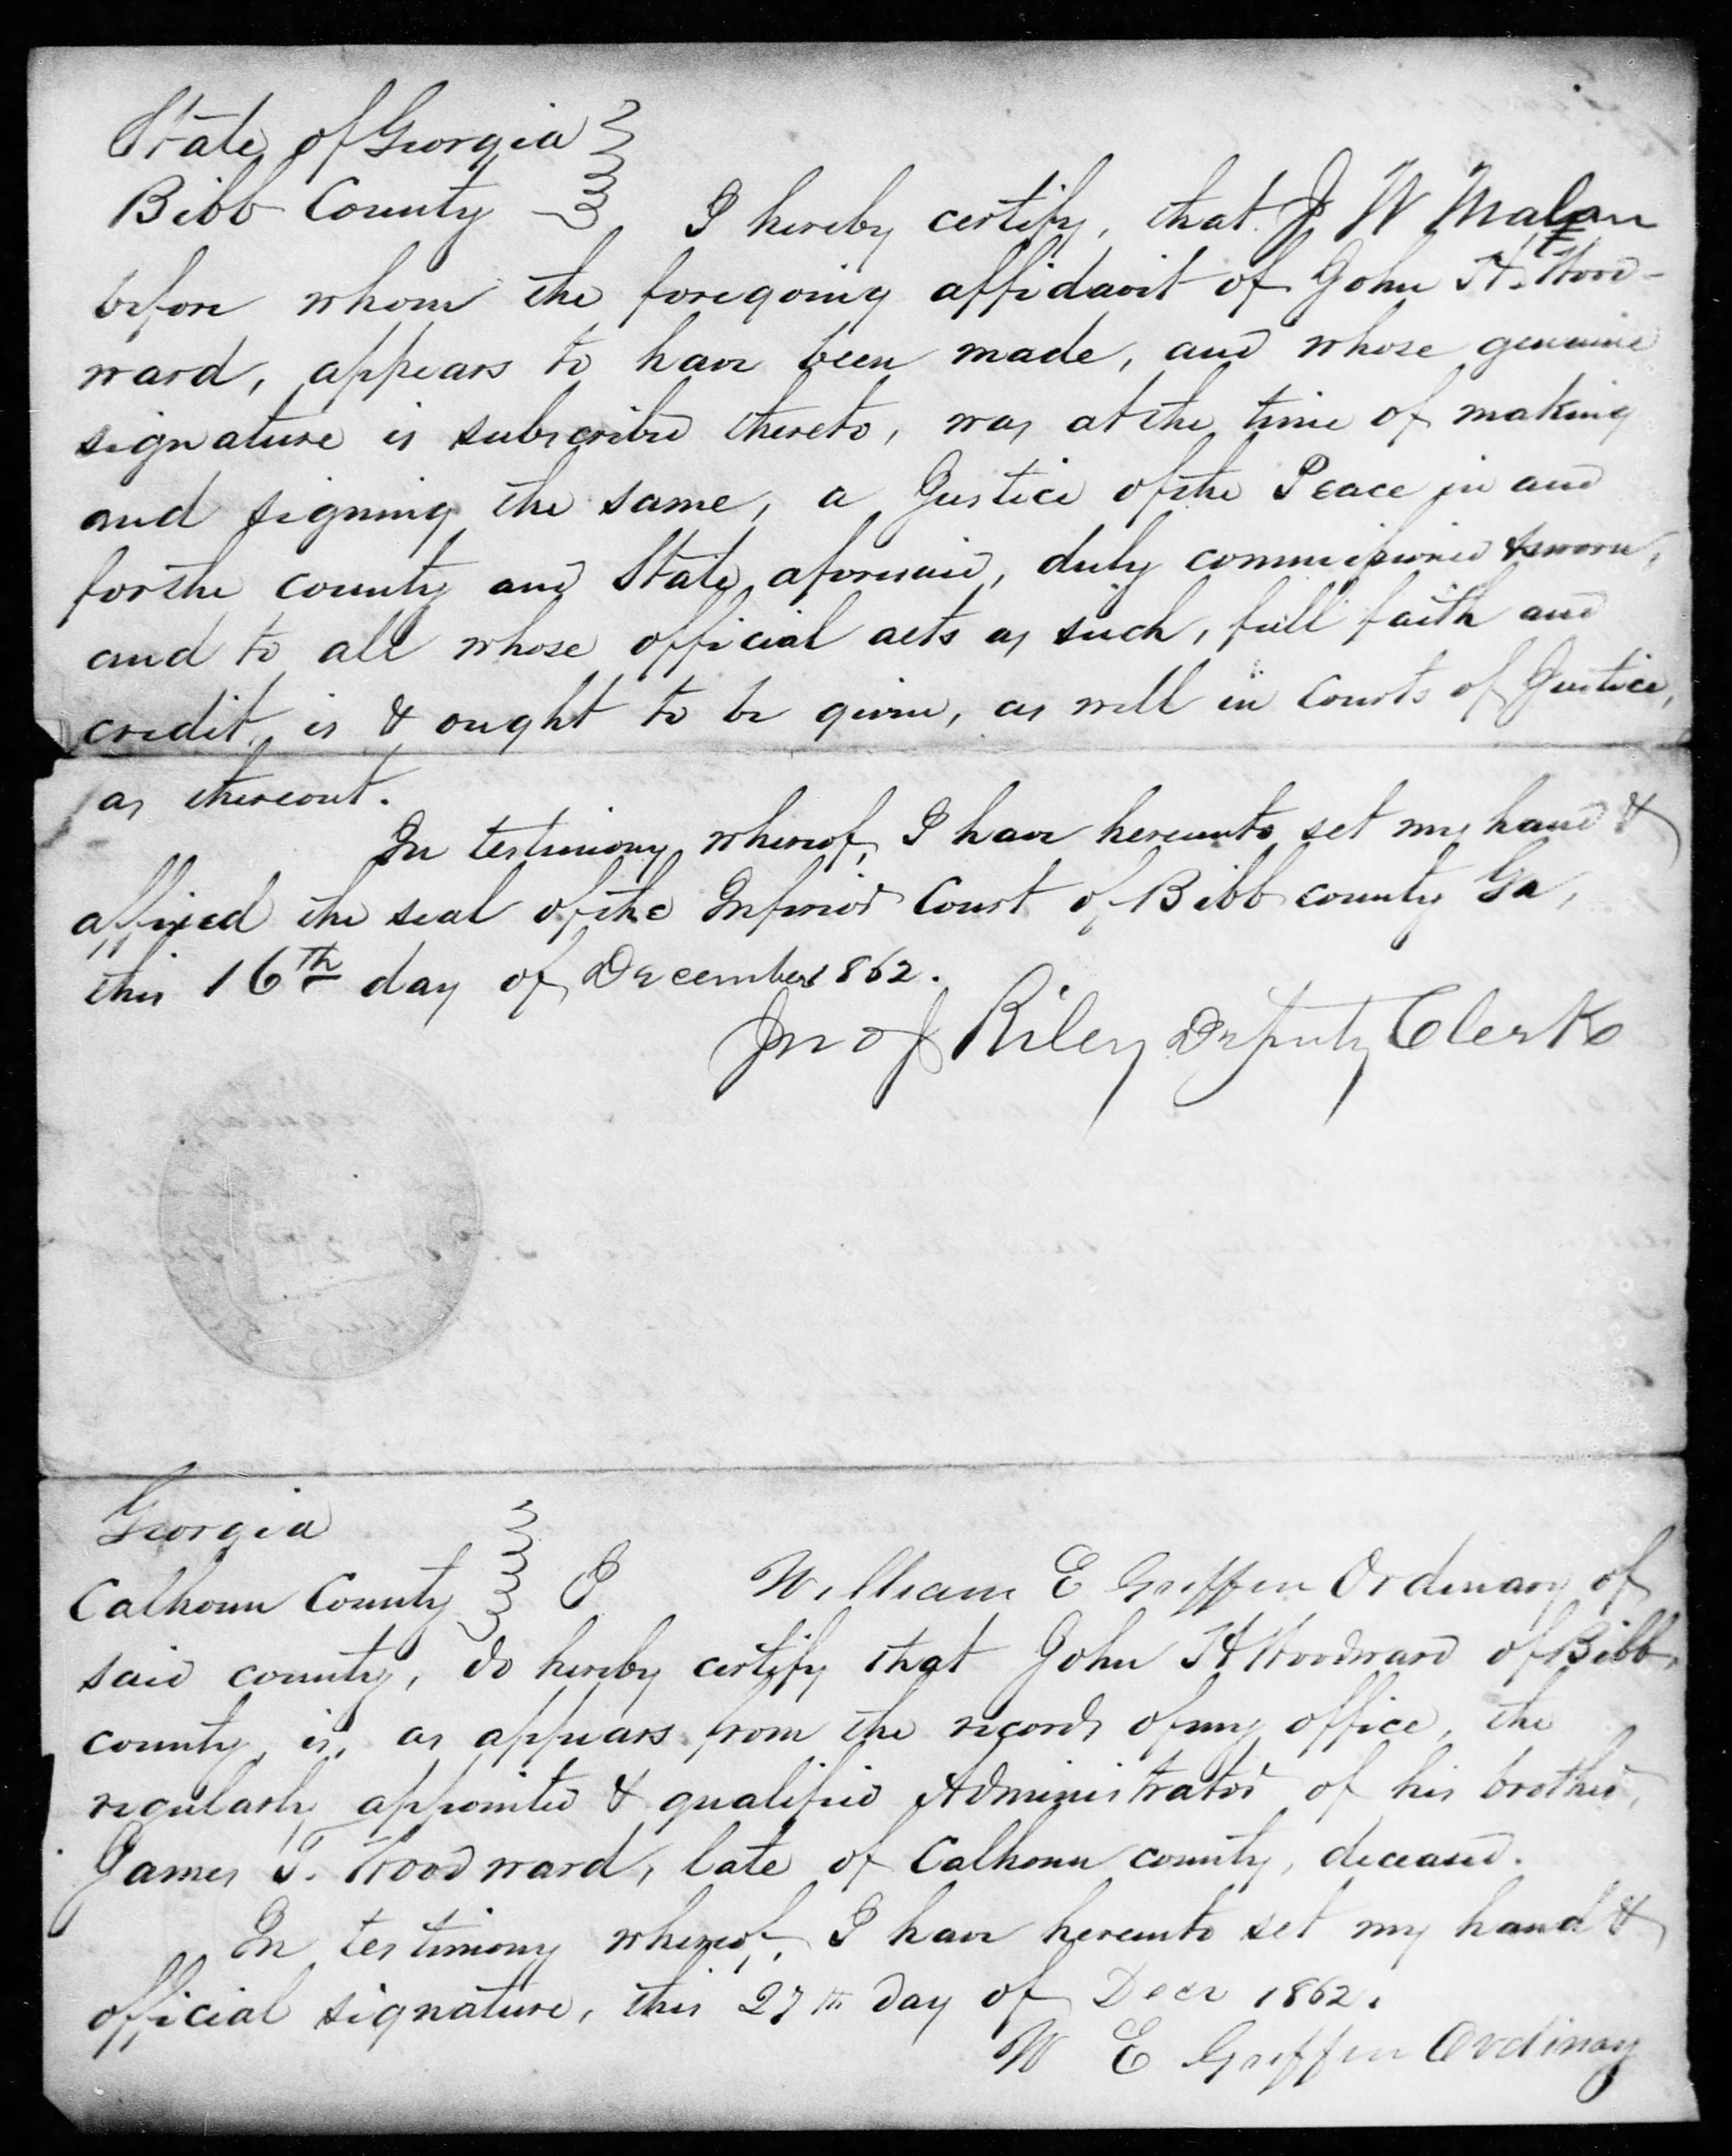 State of Georgia
Bibb County I hereby certify, that J W Malon
before whom the foregoing affidavit of John H. Wood-
ward, appears to have been made, and whose genuine
signature is subscribed thereto, was at the time of making
and signing the same, a Justice of the Peace in and
for the county and State aforesaid, duly commissioned & sworn,
and to all whose official acts as such, full faith and
credit, is & ought to be given, as well in Courts of Justice,
as thereout.
In testimony whereof, I have hereunto set my hand &
affixed the seal of the Inferior Court of Bibb county Ga,
this 16th day of December 1862.
Jno J Riley Deputy Clerk
Georgia
Calhoun County I William E Griffin Ordinary of
said county, do hereby certify that John H Woodward of Bibb
county, is, as appears from the records of my office, the
regularly appointed & qualified Administrator of his brother,
James T. Woodward, late of Calhoun county, deceased.
In testimony whereof, I have hereunto set my hand &
official signature, this 27th day of Decr 1862.
W E Griffin Ordinary